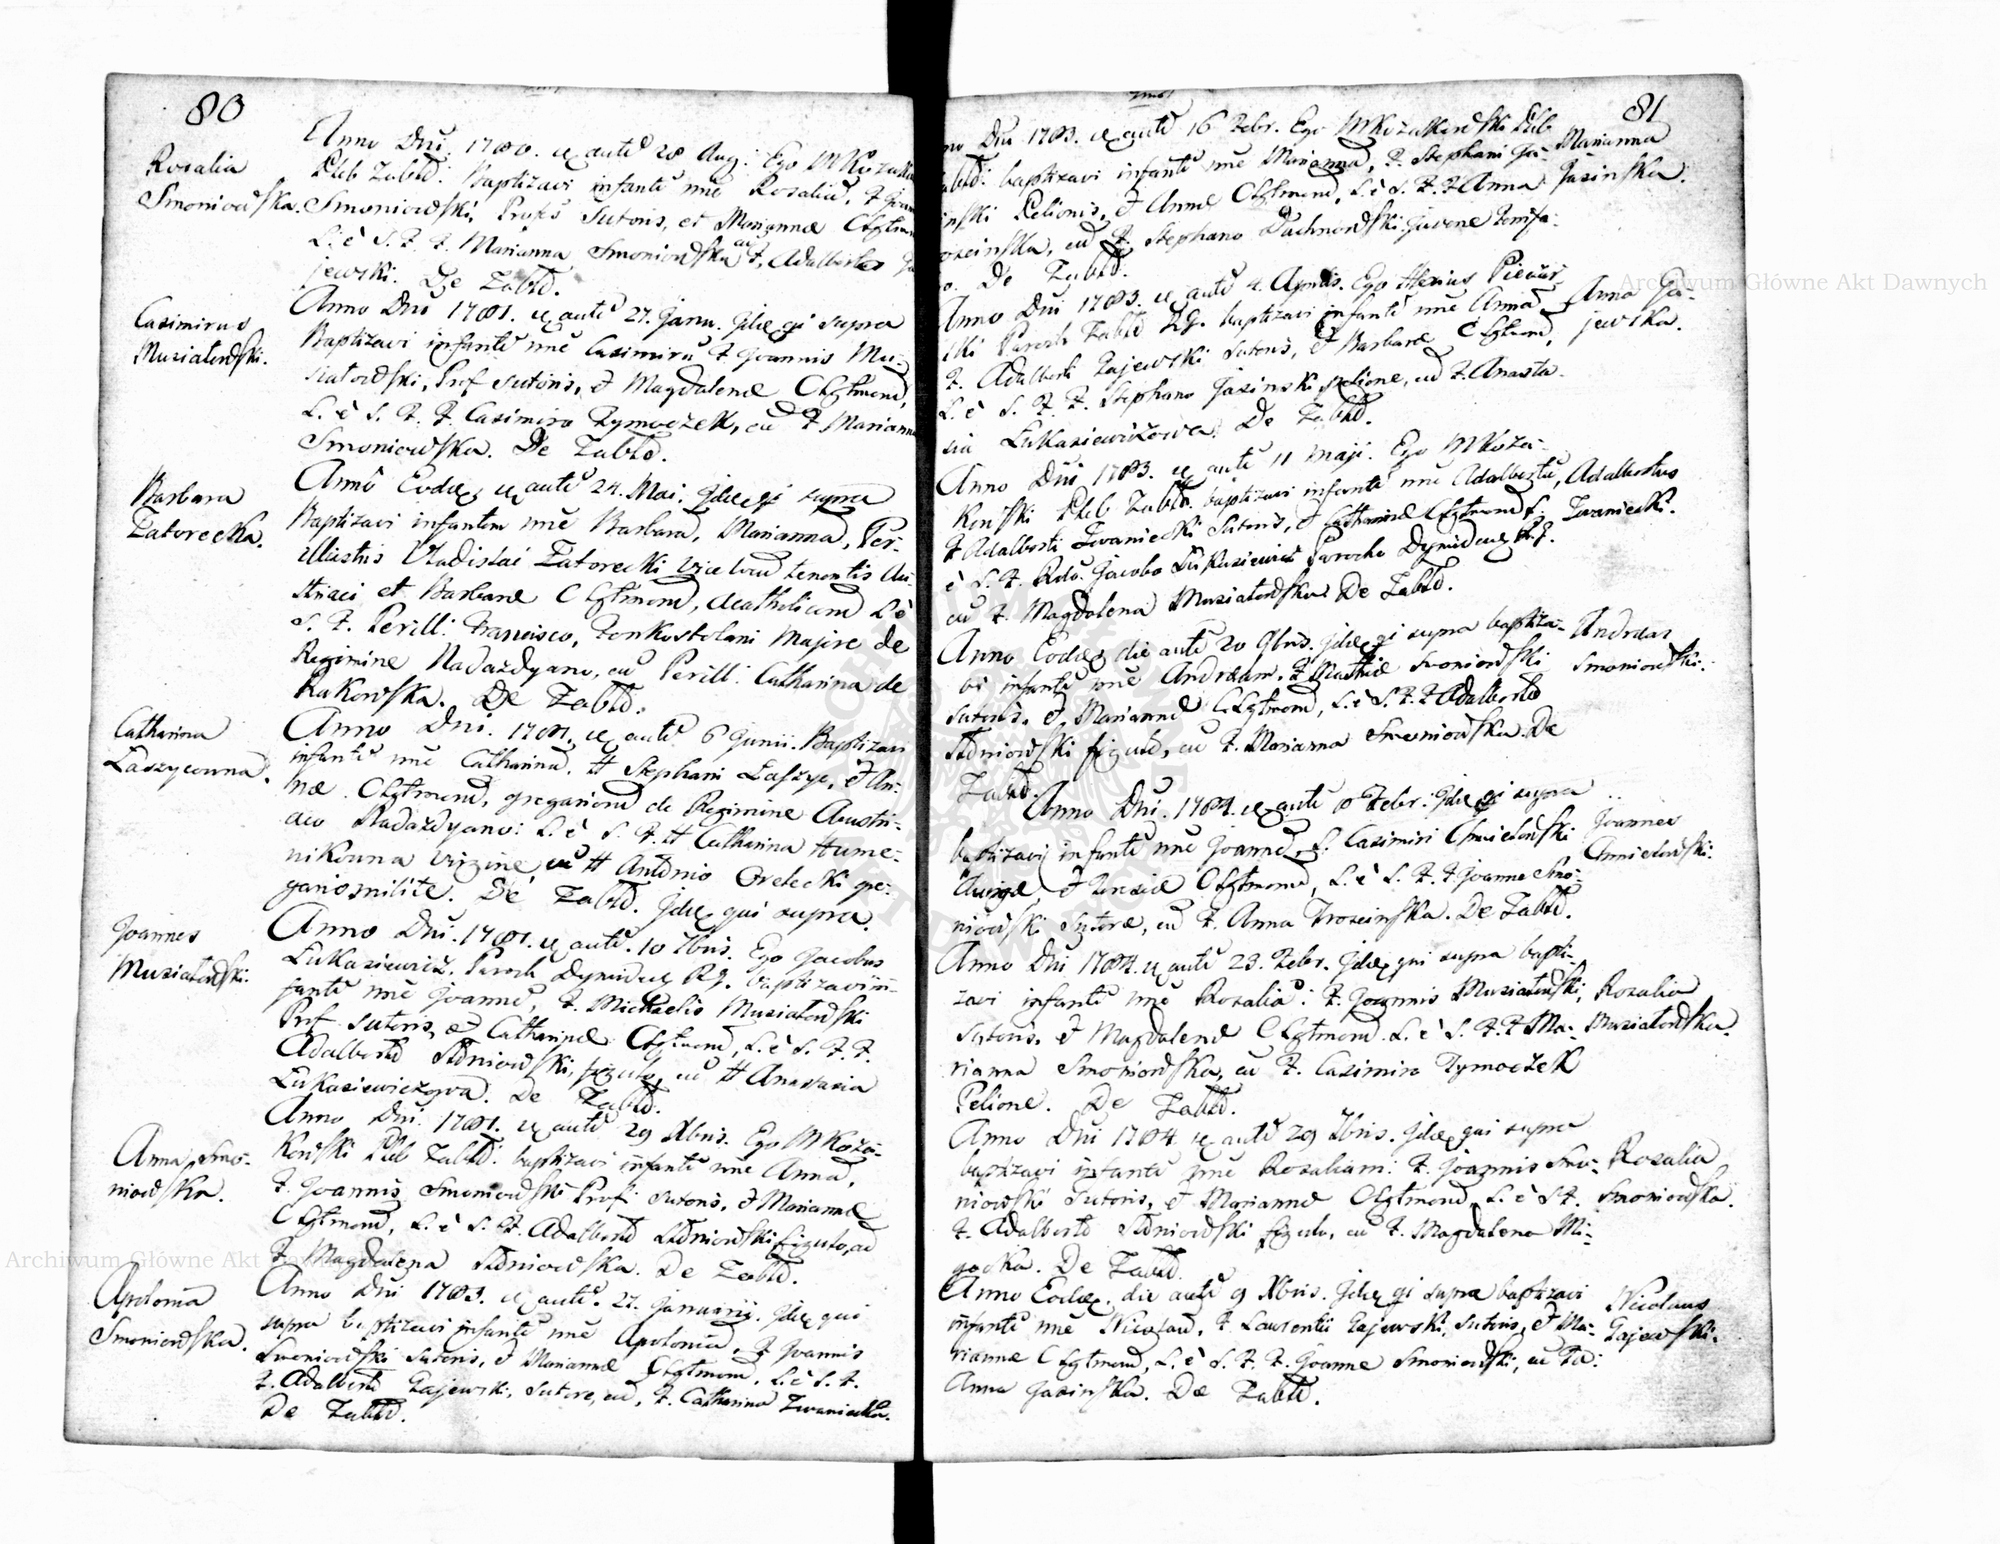 80
Rosalia
Smoniowska.
Anno Dni. 1780. autē 28 Aug: Ego MKozak
Pleb Zabłd: Baptizavi infantē nñe Rosaliā, F. Joan
Smoniowski, Profes Sutoris, et Mariannæ CLgtmor
L. è S. F. F. Marianna Smoniowska, F. Adalbertus
jewski. De Zabłd.
Casimirus
Musiatowski.
Anno Dni 1781. autē 27. Janu. Jdē qi supra
Baptizavi infantē nñe Casimirū F Joannis Mu-
siatowski, Prof sutoris, et Magdalenæ CLgtmorū,
L. è S. F. F. Casimiro Tymoczek, cū F Marianna
Smoniowska. De Zabłd.
Barbara
Zatorecka.
Annô Eodē, autē 24. Mai. Jdē qi supra
Baptizavi infantem nñe Barbarā, Marianna, Per-
illustris Vladislai Zatorecki vice locū tenentis Au-
striaci et Barbaræ CLgtmorū, Acatholicorū L è
S. F. Perill: Francisco, Fonkostolani Majore de
Regimine Nadazdyano, cū Perill: Catharina de
Rakowska. De Zabłd.
Catharina
Łaszycowna.
Anno Dni. 1781, autē 6 Junii. Baptizavi
infantē nñe Catharinā. H Stephani Łaszyc, et An-
næ CLgtmorū, gregariorū de Regimine Austri-
aco Nadazdyano: L. è S. F. H Catharina Hume-
nikowna virgine cū H Antonio Orelecki gre-
gario milite. De Zabłd. Jdē qui supra.
Joannes
Musiatowski.
Anno Dni. 1781. autē. 10 7bris. Ego Jacobus
Łukasiewicz. Paroch Dynidiens RG. baptizavi in-
fantē nñe Joannē, F. Michaelis Musiatowski
Prof. Sutoris, et Catharinæ CLgtmorū, L. è S. F. F.
Adalberto Sidniowski, figulo, cū H Anastasia
Łukasiewiczowa. De Zabłd.
Anna Smo-
niowska.
Anno Dni. 1781. autē 29 Xbris. Ego MKoza-
kowski Pleb Zabłd: baptizavi infantē nñe Annā,
F. Joannis Smoniowski Prof: Sutoris, et Mariannæ
CLgtmorū, L. è S. F. Adalberto Sidniowski figulo, cū
F Magdalena Sidniowska. De Zabłd.
Apolonia
Smoniowska.
Anno Dni 1783. autē. 27. Januarij. Jdē qui
supra baptizavi infantē nñe Apoloniā, F Joannis
Smoniowski Sutoris, et Mariannæ CLgtmorū, L. è S. F.
F. Adalberto Gajewski, Sutore, cū, F. Catharina Iwaniecka.
De Zabłd.
81
Marianna
Jasinska.
no Dni 1783. autē 16 Febr. Ego MKozakowski Pleb
Zabłd: baptizavi infantē nñe Mariannā, F. Stephani Ja-
sinski Pelionis, et Annæ CLgtmorū, L. è S. F. F Anna
Trzeinska, cū F. Stephano Dachnowski Juvene
. De Zabłd.
Anna Ga-
jewska.
Anno Dni 1783. autē 4. Aprilis. Ego
ski Paroch Zabłd RG. baptizavi infantē nñe Annā
F. Adalberti Gajewski Sutoris, et Barbaræ CLgtmorū,
L. è S. F. F. Stephano Jasinski pelione, cū F. Anasta-
sia Łukasiewiczowa. De Zabłd.
Adalbertus
Iwaniecki.
Anno Dni 1783. autē 11 Maji. Ego MKoza-
kowski Pleb Zabłd. baptizavi infantē nñe Adalbertū,
F Adalberti Iwaniecki Sutoris, et Catharinæ CLgtmorū L.
è S. F. Rdo. Jacobo Łukasiewicz Parocho Dynidiens RG.
cū F. Magdalena Musiatowska De Zabłd.
Andreas
Smoniowski.
Anno Eodē die autē 20 9bris. Jdē qi supra baptiza-
vi infantē nñe Andream. F Mathiæ Smoniowski
Sutoris, et Mariannæ CLgtmorū, L. è S. F. F Adalberto
Sidniowski figulo, cū F. Marianna Smoniowska. De
Zabłd.
Joannes
Chmielowski.
Anno Dni. 1784. autē 8 Febr: Jdē qi supra
baptizavi infantē nñe Joannē, F. Casimiri Chmielowski
Aurigæ, et CLgtmorū, L. è S. F. F Joanne Smo-
niowski Sutore, cū F. Anna Trzeinska. De Zabłd.
Rosalia
Musiatowska.
Anno Dni 1784. autē 23. Febr. Jdē qui supra bapti-
zavi infantē nñe Rosaliā: F. Joannis Musiatowski,
Sutoris, et Magdalenæ CLgtmorū L. è S. F. F Ma-
rianna Smoniowska, cū F. Casimiro Tymoczek
Pelione. De Zabłd.
Rosalia
Smoniowska.
Anno Dni 1784 autē 29 7bris. Jdē qui supra
baptizavi infantē nñe Rosaliam: F. Joannis Smo-
niowski Sutoris, et Mariannæ CLgtmorū, L. è S. F.
F. Adalberto Sidniowski figulo, cū F. Magdalena Mi-
gocka. De Zabłd.
Nicolaus
Gajewski.
Anno Eodē. die autē 9 Xbris. Jdē qi supra baptizavi
infantē nñe Nicolaū, F. Laurentii Gajewski, Sutoris, et Ma-
riannæ CLgtmorū, L. è S. F. F. Joanne Smoniowski, cū Fa:
Anna Jasinska. De Zabłd.
Archiwum Główne Akt Dawnych
Archiwum Główne Akt Dawnych